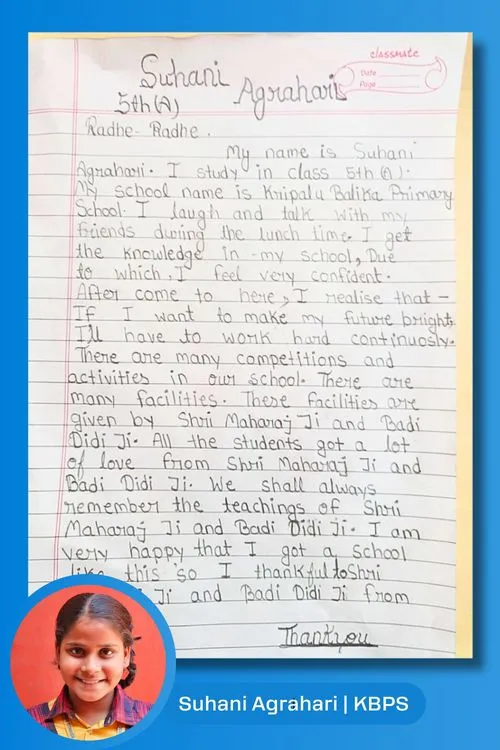 classmate
Date
Page
Suhani Agrahari
5th (A)
Radhe- Radhe .
My name is Suhani
Agrahari. I study in class 5th (A).
My school name is Kripalu Balika Primary
School. I laugh and talk with my
friends during the lunch time. I get
the knowledge in my school, Due
to which, I feel very confident.
After come to here, I realise that -
If I want to make my future bright,
I'll have to work hard continuosly.
There are many competitions and
activities in our school. There are
many facilities. These facilities are
given by Shri Maharaj Ji and Badi
Didi Ji. All the students got a lot
of love from Shri Maharaj Ji and
Badi Didi Ji. We shall always
remember the teachings of Shri
Maharaj Ji and Badi Didi Ji. I am
very happy that I got a school
like this so I thankful to Shri
Ji and Badi Didi Ji from
Thankyou
Suhani Agrahari | KBPS